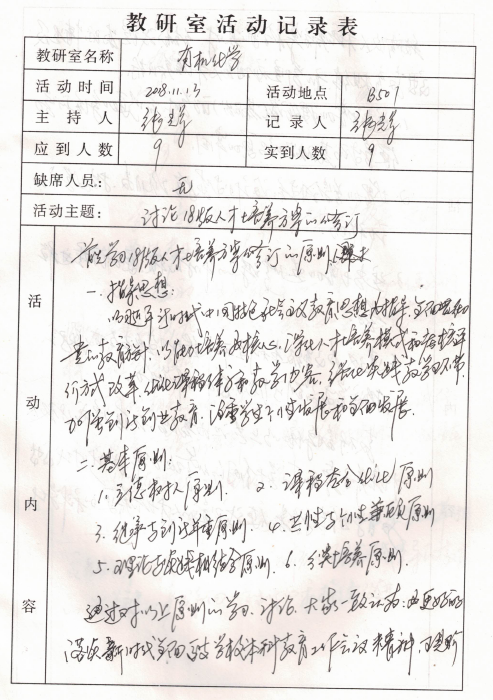 教研室活动记录表
教研室名称 有机化学
活动时间 2018.11.13 活动地点 B501
主持人 记录人
应到人数 9 实到人数 9
缺席人员: 无
活动主题: 讨论18版人才培养方案的修订
活动内容
首先学习18版人才培养方案修订的原则
一.指导思想:
以习近平新时代中国特色社会主义教育思想为指导,全面
教育方针,以能力培养为核心,深化人才培养模式和考核评
价方式改革,优化课程体系和教学内容,强化实践教学环节,
加强创新创业教育,注重学生个性发展和全面发展。
二.基本原则:
1.立德树人原则. 2.课程志全优化原则
3.继承与创新并重原则. 4.共性与个性兼顾原则
5.理论与实践相结合原则. 6.分类培养原则.
通过对以上原则的学习、讨论,大家一致认为:要更好的
落实新时代全国高等学校本科教育工作会议精神,